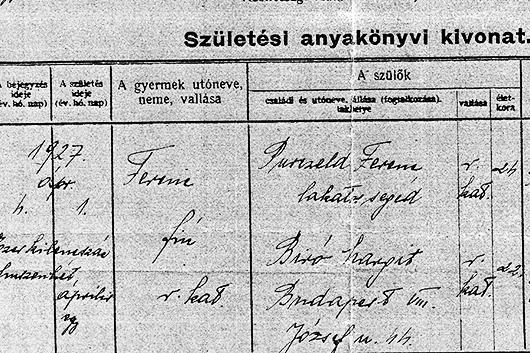 Születési anyakönyvi kivonat.
A bejegyzés ideje (év. hó. nap)
A születés ideje (év. hó. nap)
A gyermek utóneve, neme, vallása
A szülők
családi és utóneve, állása (foglalkozása), lakhelye
vallása
életkora
1927.
apr.
4. 1.
Ferenc
fiú
r. kat.
Purczeld Ferenc
lakatossegéd
r. kat.
24
Biró Margit
Budapest VIII.
József u. 14.
r. kat.
22.
április
egy